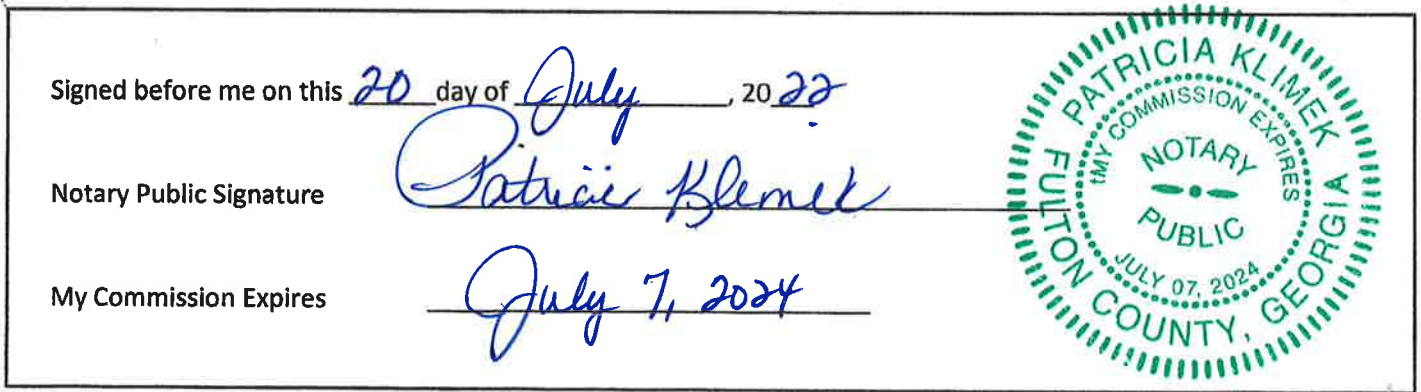 Signed before me on this 20 day of July, 2022
Notary Public Signature Patricia Klimek
My Commission Expires July 7, 2024
PATRICIA KLIMEK
MY COMMISSION EXPIRES
NOTARY
PUBLIC
JULY 07, 2024
FULTON COUNTY, GEORGIA